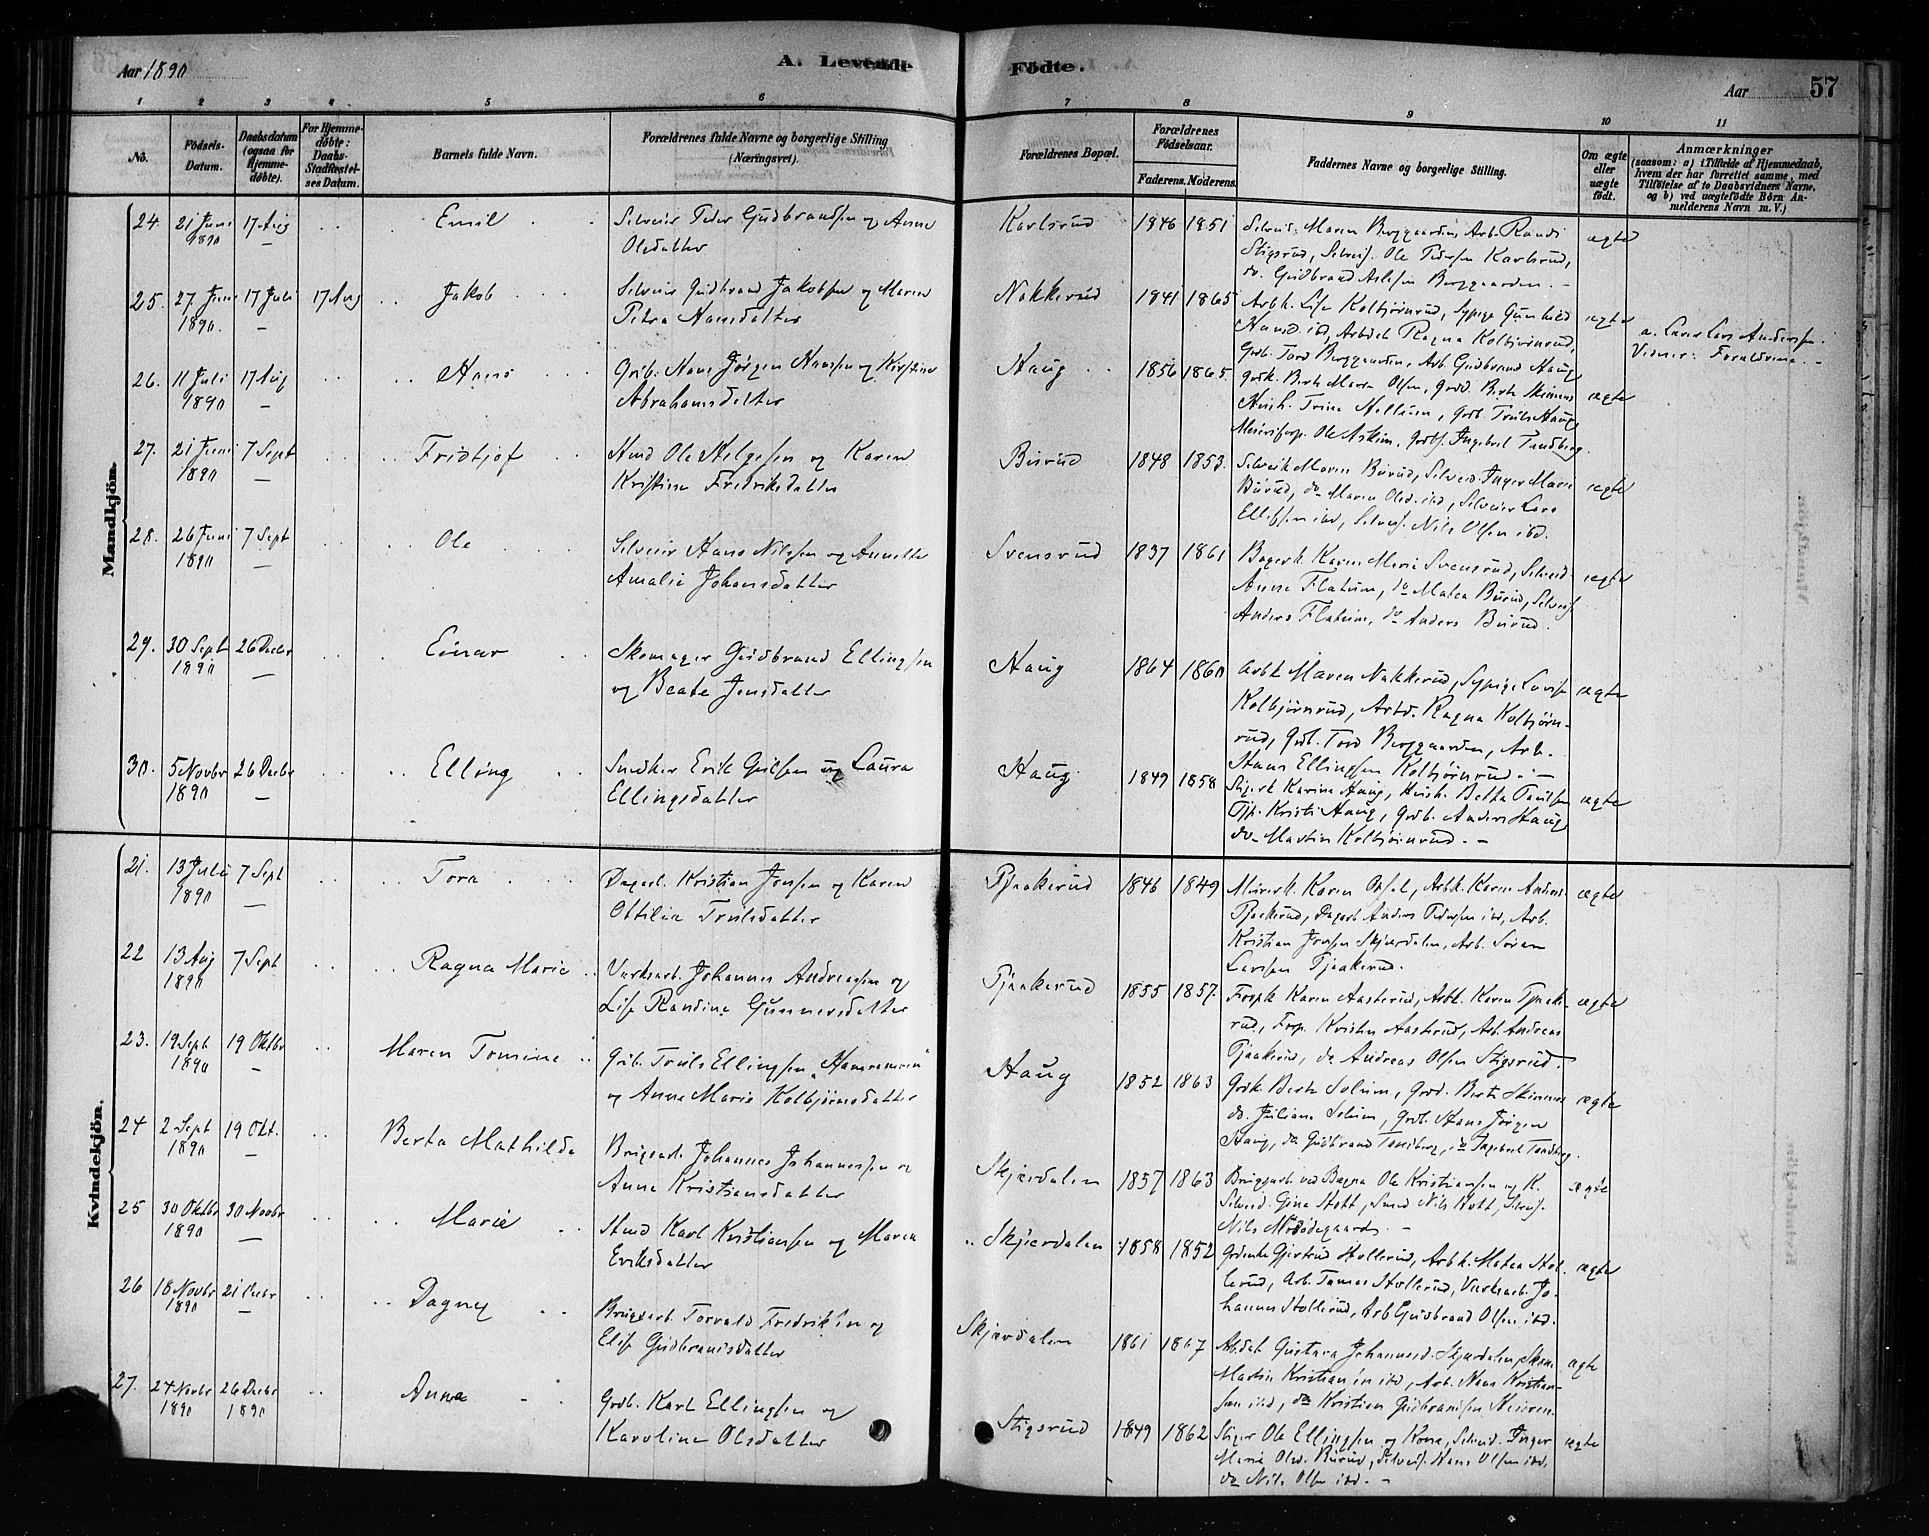 Aar 1890
A. Levende Fødte.
Aar
57
1 2 3 4 5 6 7 8 9 10 11
No.
Fødsels-Datum.
Daabsdatum (ogsaa for Hjemmedøbte).
For Hjemmedøbte: Daabs-Stadfæstelses Datum.
Barnets fulde Navn.
Forældrenes fulde Navne og borgerlige Stilling (Næringsvei).
Forældrenes Bopæl.
Forældrenes Fødselsaar.
Faderens. Moderens.
Faddernes Navne og borgerlige Stilling.
Om ægte eller uægte født.
Anmærkninger
(saasom: a) i Tilfælde af Hjemmedaab,
hvem der har forrettet samme, med
Tilføielse af to Daabsvidners Navne,
og b) ved uægtefødte Børn An-
melderens Navn m.V.)
Mandkjön.
24. 21 Juni 1890 17 Aug Emil Selveier Peder Gudbrandsen og Anne
Olsdatter
Karlsrud 1846 1851 Selveid. Maren Berggaarden, Arb. Randi
Stigsrud, Selveisf. Ole Pedersen Karlsrud,
do. Gudbrand Berggaarden. ægte
25. 27. Juni 1890. 17 Juli 17 Aug Jakob Selveier Gudbrand Jakobsen og Maren
Petra Hansdatter
Nakkerud 1841 1865 Arbk. Lise Kolbjørnrud, Sypige Gunhild
Hansd. ibd, Arbdat Ragna Kolbjørnrud,
Grb. Tord Berggaarden, Arb. Gudbrand Haug ægte
a. Lærer Lars Andersen.
Vidner: Forældrene.
26. 11 Juli 1890 17 Aug Hans Grdb. Hans Jørgen Hansen og Kirstine
Abrahamsdatter
Haug 1856 1865. Grdk. Berte Marie Olsen, Grdd. Berte Skinnes
Hush. Trine, Grdb. Truls Haug,
Ole Askim, Grdbs. Ingebret Tandberg. ægte
27. 21 Juni 1890 7 Sept Fridtjof Smed Ole Helgesen og Karen
Kristine Fredriksdatter
Burud 1848 1853. Selveik Maren Burud, Selveid Inger Marie
Burud, do Maren Olsd. ibd, Selveier Lars
Ellefsen ibd, Selveis. Nils Olsen ibd. ægte
28. 26 Juni 1890 7 Sept Ole Selveier Hans Nilssen og Annette
Amalie Johansdatter
Svensrud 1837 1861 Bagerk Karen Marie Svensrud, Selveid
Anne Flatum, do Matea Burud, Selveisf
Anders Flatum, do Anders Burud. ægte
29. 30 Sept 1890 26 Decbr Einar Skomager Gudbrand Ellingsen
og Beate Jensdatter
Haug 1864 1860 Arbk Maren Nakkerud, Sypige Lovise
Kolbjørnrud, Arbd. Ragna Kolbjørn-
rud, Grdb. Tord Berggaarden, Arb.
Hans Ellingsen Kolbjørnrud. ægte
30. 5 Novbr 1890 26 Decbr Elling Snedker Erik Gulsen og Laura
Ellingsdatter
Haug 1849 1858 Karine Haug, Hush. Betha Paulsen
Tjp. Kristi Haug, Grdb. Anders Haug,
do. Martin Kolbjørnrud. ægte
Kvindekjön.
21. 13 Juli 1890 7 Sept Tora Dagarb. Kristian Jonsen og Karen
Ottilie Trulsdatter
Tjaakerud 1846 1849 Murerk. Karen Opsal, Arbk. Karen Anders
Tjaakerud, Dagarb Anders Pedersen ibd, Arb.
Kristian Jonsen Skjærdalen, Arb. Søren
Larsen Tjaakerud. ægte
22 13 Aug 1890 7 Sept Ragna Marie Værksarb. Johannes Andreassen og
Lise Randine Gunnersdatter
Tjaakerud 1855 1857. Forpk Karen Aasterud, Arbk. Karen Tjaake-
rud, Forp. Kristen Aasterud, Arb. Andreas
Tjaakerud, do Andreas Olsen Stigsrud. ægte
23. 19 Sept 1890 19 Oktbr Maren Tomine Grdb. Truls Ellingsen
og Anne Marie Kolbjørnsdatter
Haug 1852 1863 Grdk. Berte Solum, Grdd. Berte Skinnes
do. Juliane Solum, Grdb. Hans Jørgen
Haug, do Gudbrand Tandberg, do Ingebret Tandberg. ægte
24 2 Sept 1890 19 Okt. Berta Mathilde Brugsarb. Johannes Johannessen og
Anne Kristiansdatter
Skjærdalen 1857 1863 Brugsarb ved Bægna Ole Kristiansen og K.
Selveid. Gina Hott, Smed Nils Hott, Selveisf.
Nils Modegaard. ægte
25 30 Oktbr 1890 30 Novbr Marie Smed Karl Kristiansen og Maren
Eriksdatter
Skjærdalen 1858 1852 Grdenke Gjertrud Hollerud, Arbk. Matea Hol-
lerud, Arb. Tomas Hollerud, Værksarb. Jo-
hannes Hollerud, Arb Gudbrand Olsen ibd. ægte
26 18 Novbr 1890 21 Decbr Dagny Brugsarb. Torvald Fredriksen og
Elise Gudbrandsdatter
Skjærdalen 1861 1867 Arbdat Gustava Johannesd. Skjærdalen, Skom.
Martin Kristiansen ibd, Arb. Hans Kristian-
sen ibd, do Kristian Gudbrandsen Steinen. ægte
27. 24 Novbr 1890 26 Decbr 1890 Anna Grdb. Karl Ellingsen og
Karoline Olsdatter
Stigsrud 1849 1862 Stiger Ole Ellingsen og Kone, Selveid. Inger
Marie Olsd. Burud, Selveisf. Hans Olsen ibd,
do Nils Olsen ibd. ægte